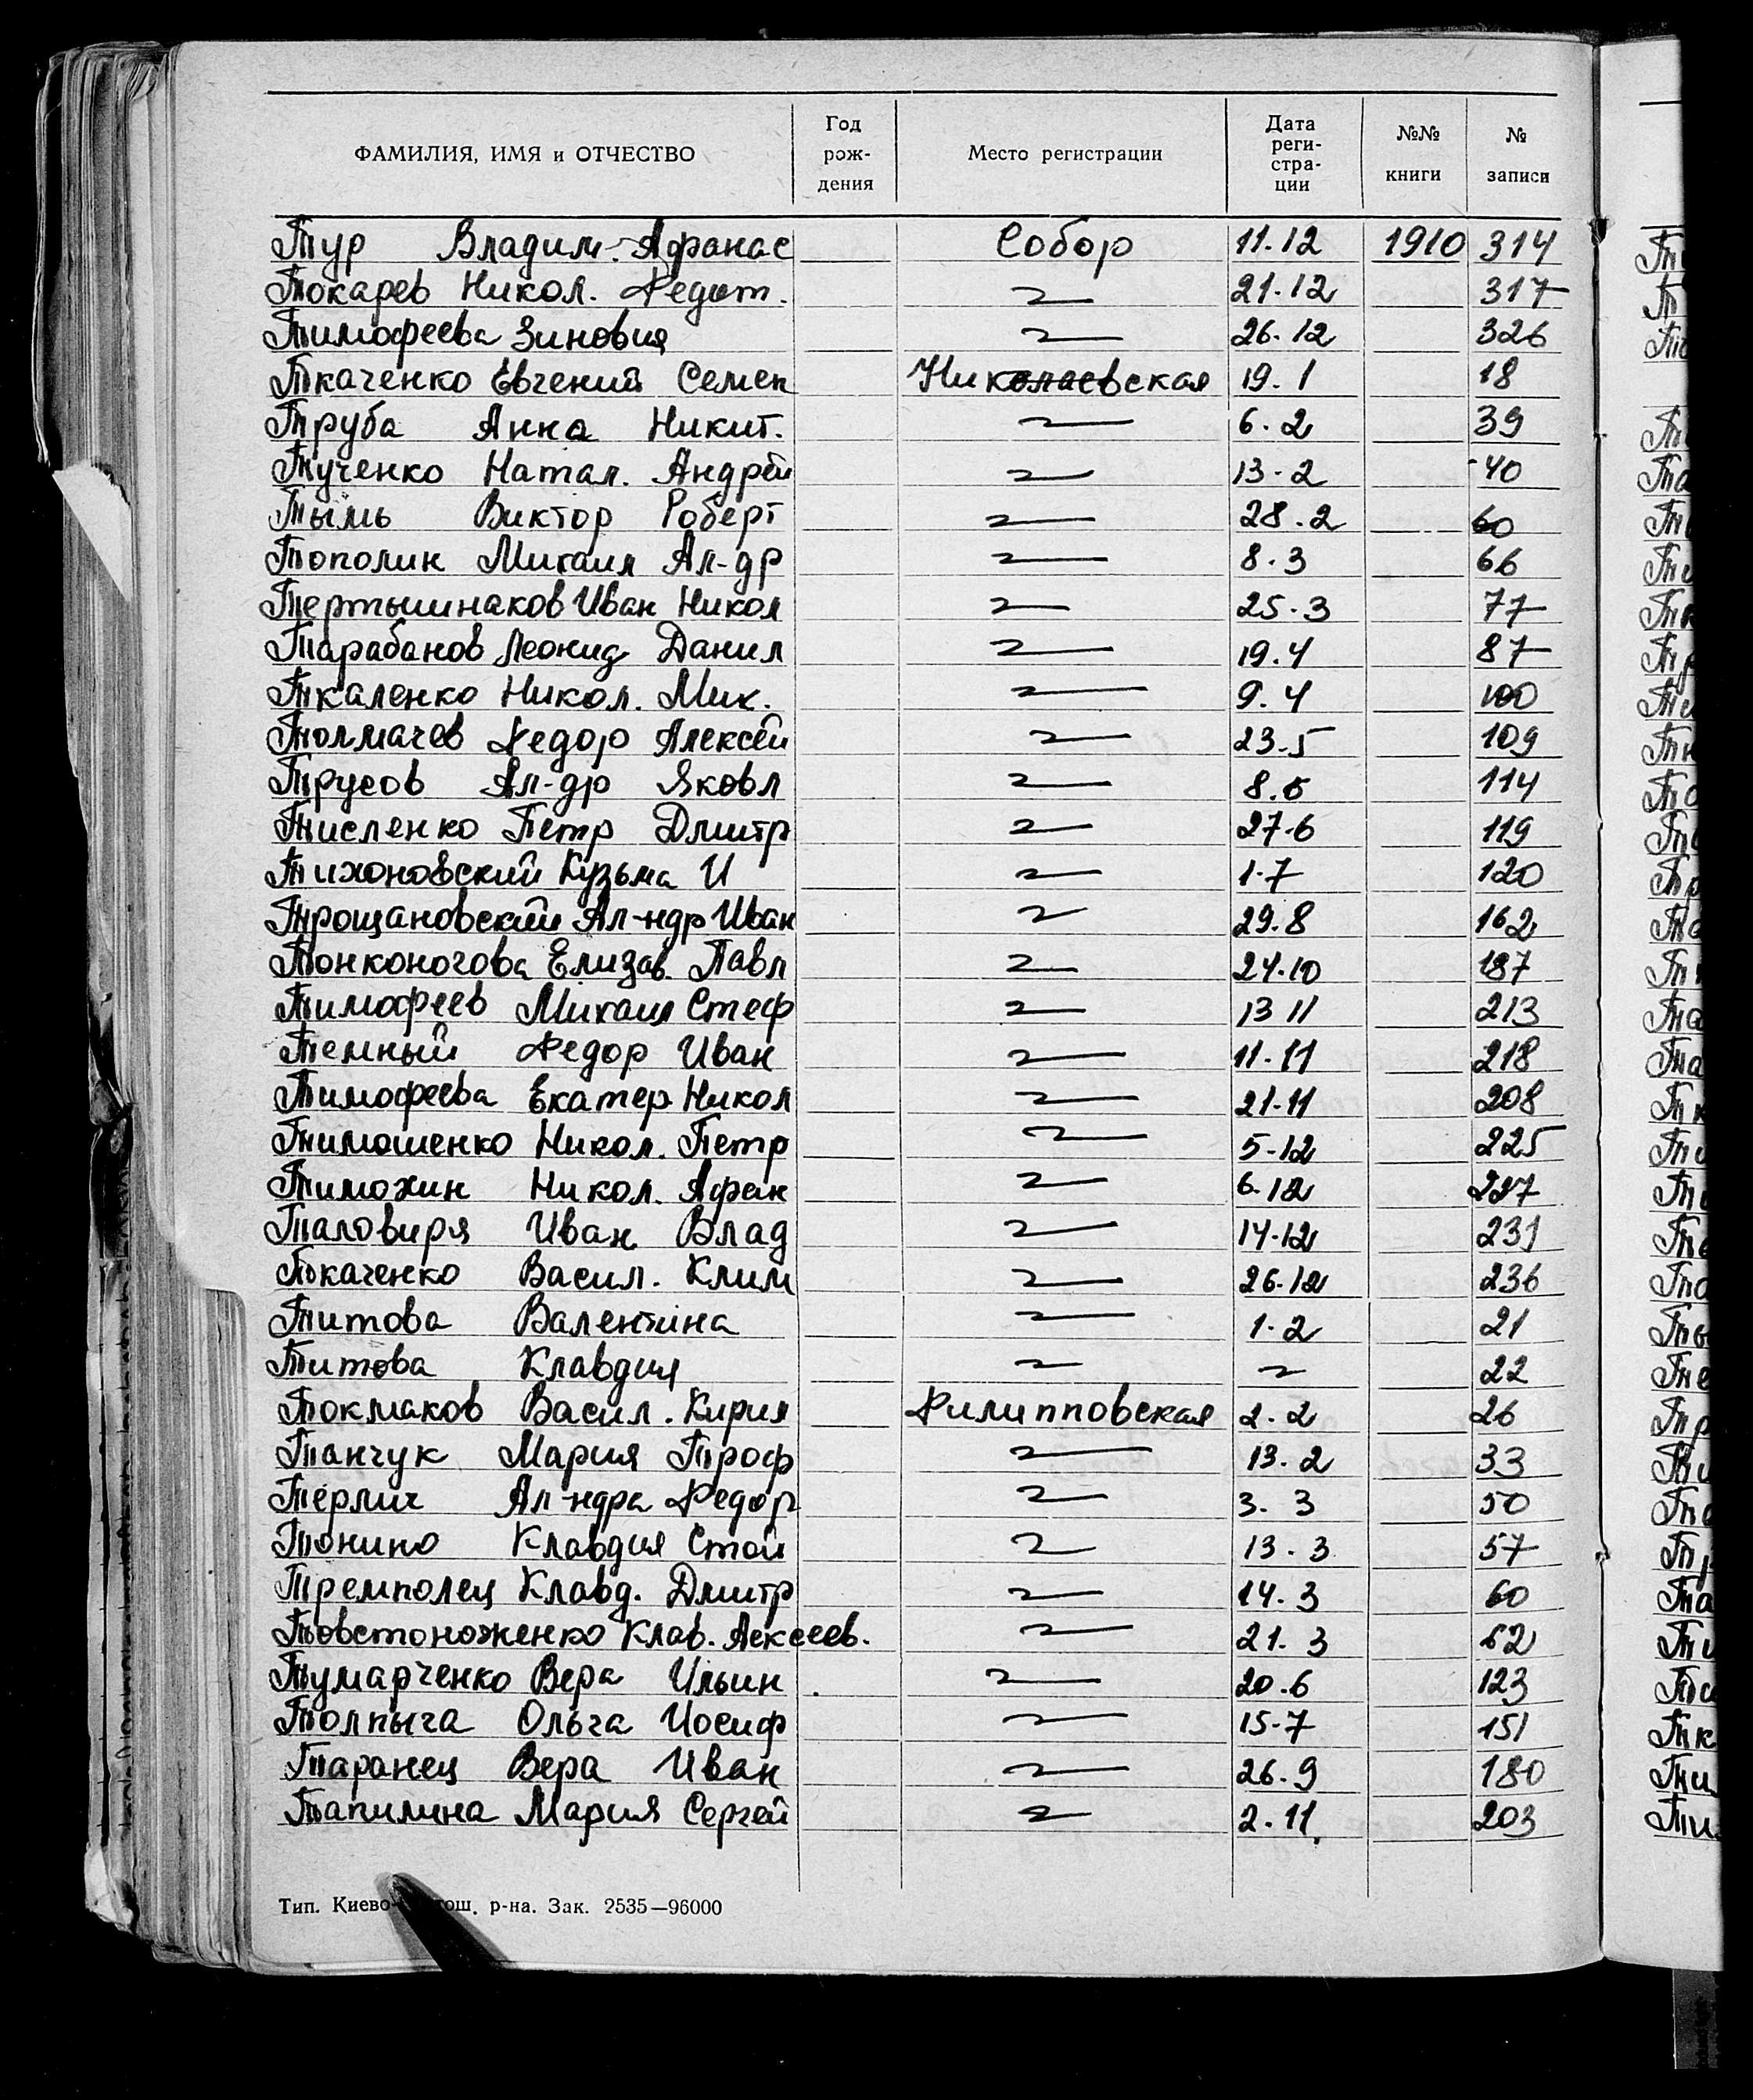 ФАМИЛИЯ, ИМЯ и ОТЧЕСТВО Год рож- дения Место регистрации Дата реги- стра- ции №№ книги № записи
Тур Владим. Афанас Собор 11.12 1910 314
Токарев Никол. Федот. 21.12 317
Тимофеева Зиновия 26.12 326
Ткаченко Евгений Семен Николаевская 19.1 18
Труба Анна Никит. 6.2 39
Тученко Натал. Андрей 13-2 40
Тымь Виктор Роберт 28.2 60
Тополин Михаил Ал-др 8.3 66
Тертышнаков Иван Никол 25.3 77
Тарабанов Леонид Данил 19.4 87
Ткаленко Никол. Мих. 9.4 100
Толмачев Федор Алексей 23.5 109
Трусов Ал-др Яковл 8.6 114
Тисленко Петр Дмитр 27-6 119
Тихоновский Кузьма И 1-7 120
Трощановский Ал-ндр Иван 29.8 162
Тонконогова Елизав. Павл 24.10 187
Тимофеев Михаил Стеф 13 11 213
Темный Федор Иван 11-11 218
Тимофеева Екатер Никол 21-11 208
Тимошенко Никол. Петр 5-12 225
Тимохин Никол. Афан 6.12 227
Таловиря Иван Влад 14-12 231
Ткаченко Васил. Клим 26.12 236
Титова Валентина 1.2 21
Титова Клавдия 22
Токмаков Васил. Кирил Филипповская 2.2 26
Танчук Мария Троф 13.2 33
Терлич Ал-ндра Федор 3. 3 50
Тонино Клавдия Стой 13.3 57
Тремполец Клавд. Дмитр 14.3 60
Товстоноженко Клав. Аексеев. 21.3 62
Тумарченко Вера Ильин 20.6 123
Толпыга Ольга Иосиф 15-7 151
Таранец Вера Иван 26.9 180
Тапилина Мария Сергей 2.11. 203
Тип. Киево- р-на. Зак. 2535—96000